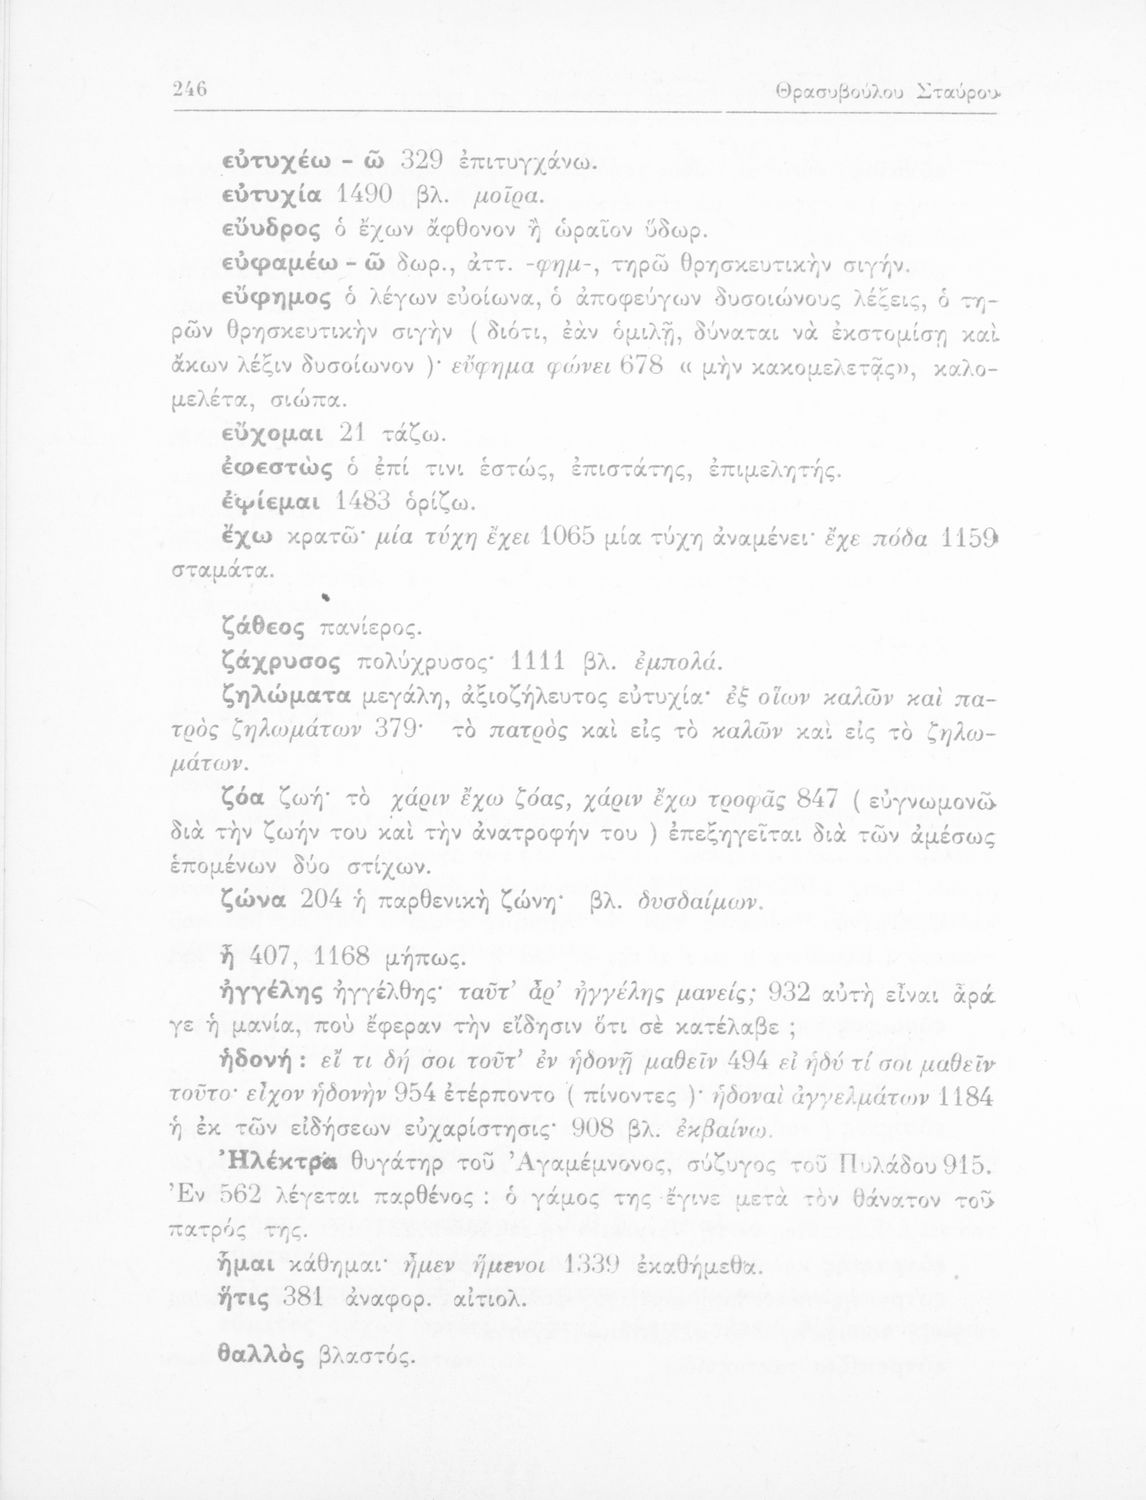 246 Θρασυβούλου Σταύρου
εὐτυχέω - ῶ 329 ἐπιτυγχάνω.
εὐτυχία 1490 βλ. μοῖρα.
εὔυδρος ὁ ἔχων ἄφθονον ἢ ὡραῖον ὕδωρ.
εὐφαμέω - ῶ δωρ., ἀττ. -φημ-, τηρῶ θρησκευτικὴν σιγήν.
εὔφημος ὁ λέγων εὐοίωνα, ὁ ἀποφεύγων δυσοιώνους λέξεις, ὁ τη-
ρῶν θρησκευτικὴν σιγὴν ( διότι, ἐὰν ὁμιλῇ, δύναται νὰ ἐκστομίσῃ καὶ
ἄκων λέξιν δυσοίωνον )· εὔφημα φώνει 678 « μὴν κακομελετᾷς», καλο-
μελέτα, σιώπα.
εὔχομαι 21 τάζω.
ἐφεστὼς ὁ ἐπί τινι ἑστώς, ἐπιστάτης, ἐπιμελητής.
ἐφίεμαι 1483 ὁρίζω.
ἔχω κρατῶ· μία τύχη ἔχει 1065 μία τύχη ἀναμένει· ἔχε πόδα 1159
σταμάτα.
ζάθεος πανίερος.
ζάχρυσος πολύχρυσος· 1111 βλ. ἐμπολά.
ζηλώματα μεγάλη, ἀξιοζήλευτος εὐτυχία· ἐξ οἵων καλῶν καὶ πα-
τρὸς ζηλωμάτων 379· τὸ πατρὸς καὶ εἰς τὸ καλῶν καὶ εἰς τὸ ζηλω-
μάτων.
ζόα ζωή· τὸ χάριν ἔχω ζόας, χάριν ἔχω τροφᾶς 847 ( εὐγνωμονῶ
διὰ τὴν ζωήν του καὶ τὴν ἀνατροφήν του ) ἐπεξηγεῖται διὰ τῶν ἀμέσως
ἑπομένων δύο στίχων.
ζώνα 204 ἡ παρθενικὴ ζώνη· βλ. δυσδαίμων.
ἦ 407, 1168 μήπως.
ἠγγέλης ἠγγέλθης· ταῦτ’ ἆρ’ ἠγγέλης μανείς; 932 αὐτὴ εἶναι ἆρά
γε ἡ μανία, ποὺ ἔφεραν τὴν εἴδησιν ὅτι σὲ κατέλαβε ;
ἡδονή : εἴ τι δή σοι τοῦτ’ ἐν ἡδονῇ μαθεῖν 494 εἰ ἡδύ τί σοι μαθεῖν
τοῦτο· εἶχον ἡδονὴν 954 ἐτέρποντο ( πίνοντες )· ἡδοναὶ ἀγγελμάτων 1184
ἡ ἐκ τῶν εἰδήσεων εὐχαρίστησις· 908 βλ. ἐκβαίνω.
Ἠλέκτρα θυγάτηρ τοῦ Ἀγαμέμνονος, σύζυγος τοῦ Πυλάδου 915.
Ἐν 562 λέγεται παρθένος : ὁ γάμος της ἔγινε μετὰ τὸν θάνατον τοῦ
πατρός της.
ἧμαι κάθημαι· ἧμεν ἥμενοι 1339 ἐκαθήμεθα.
ἥτις 381 ἀναφορ. αἰτιολ.
θαλλὸς βλαστός.